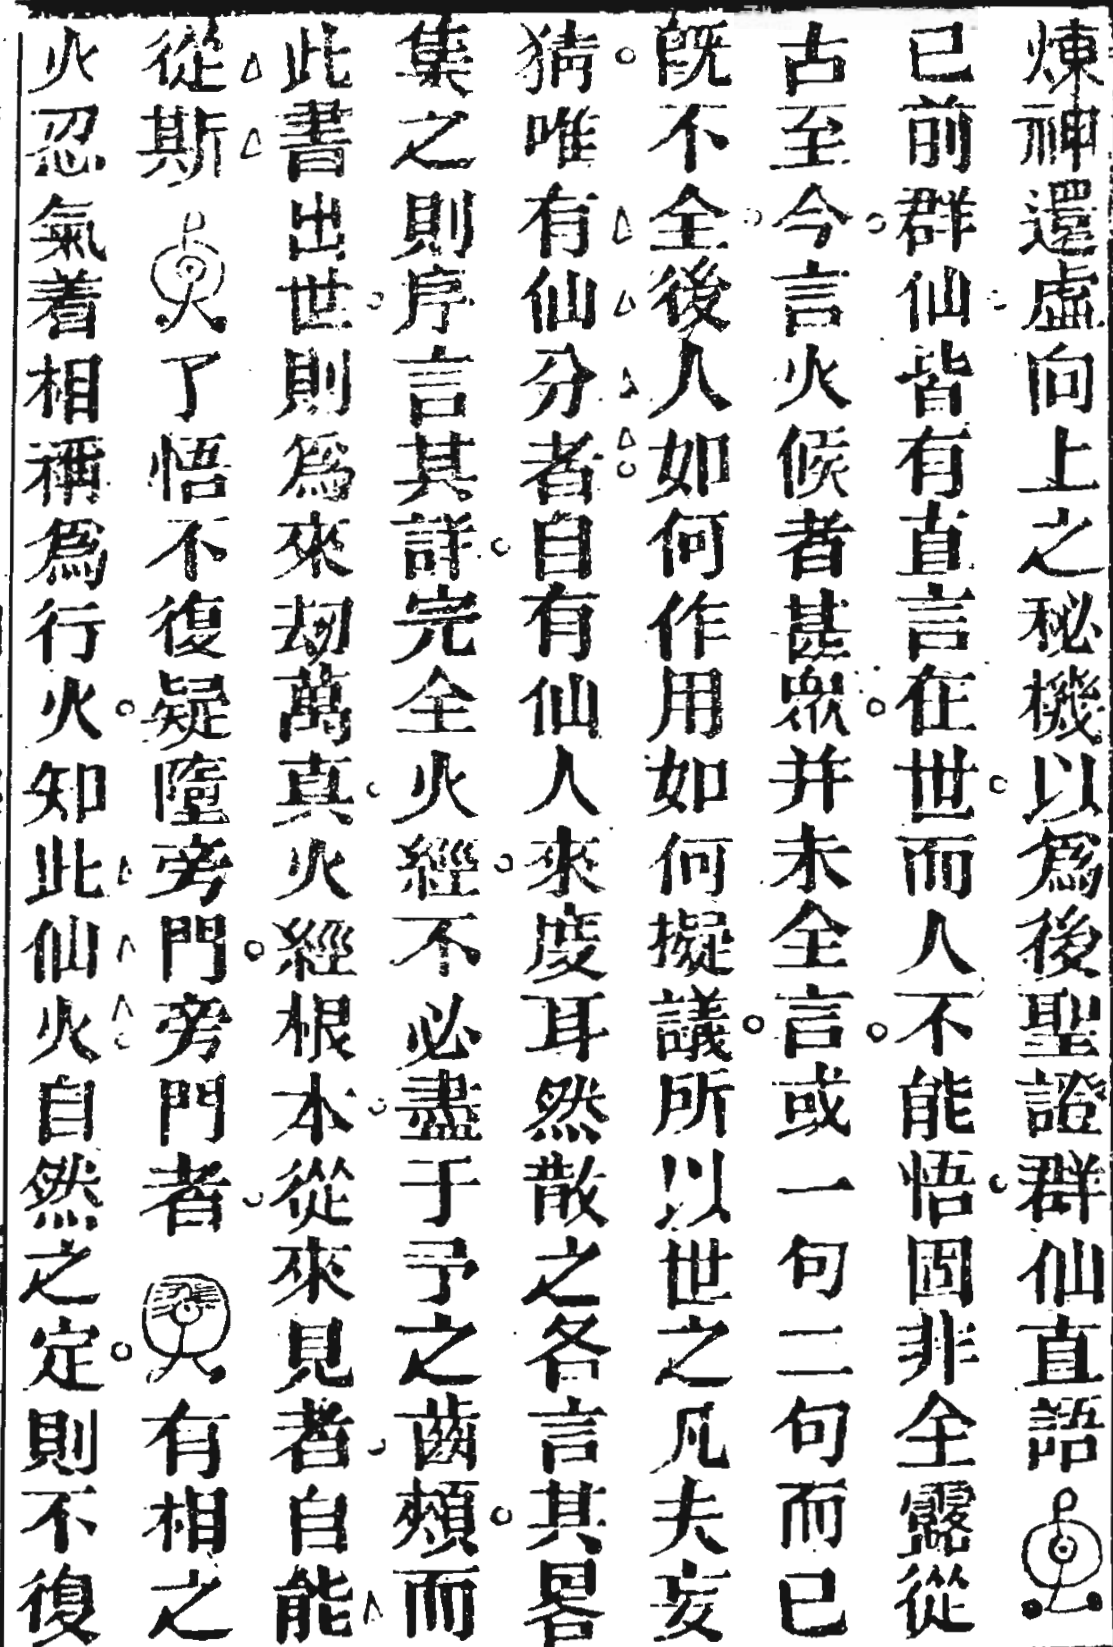 煉神還虛向上之秘機以爲後聖證群仙直語
已前群仙皆有直言在世而人不能悟固非全露從
古至今言火候者甚衆并未全言或一句二句而已
旣不全後人如何作用如何擬議所以世之凡夫妄
猜唯有仙分者自有仙人來度耳然散之各言其畧
集之則序言其詳完全火經不必盡于予之齒頰而
此書出世則爲來劫萬真火經根本從來見者自能
從斯了悟不復疑墮旁門旁門者有相之
火忍氣着相稱爲行火知此仙火自然之定則不復